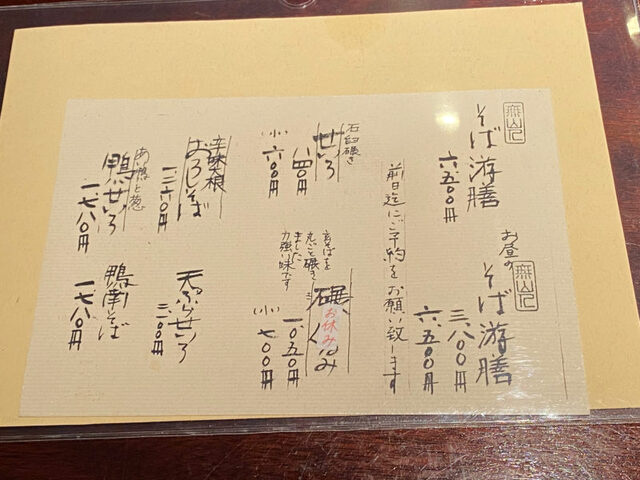 そば游膳
六.五〇〇円
お昼の
そば游膳
三.八〇〇円
六.五〇〇円
前日迄にご予約をお願い致します
石臼碾き
せいろ
八四〇円
(小)六〇〇円
玄そばを
丸ごと碾き
ました
力強い味です
碾ぐるみ
お休み
一.〇五〇円
(小)七〇〇円
辛味大根
おろしそば
一.二六〇円
天ぷらせいろ
あい鴨と葱
鴨せいろ
一.七八〇円
鴨南そば
一.七八〇円